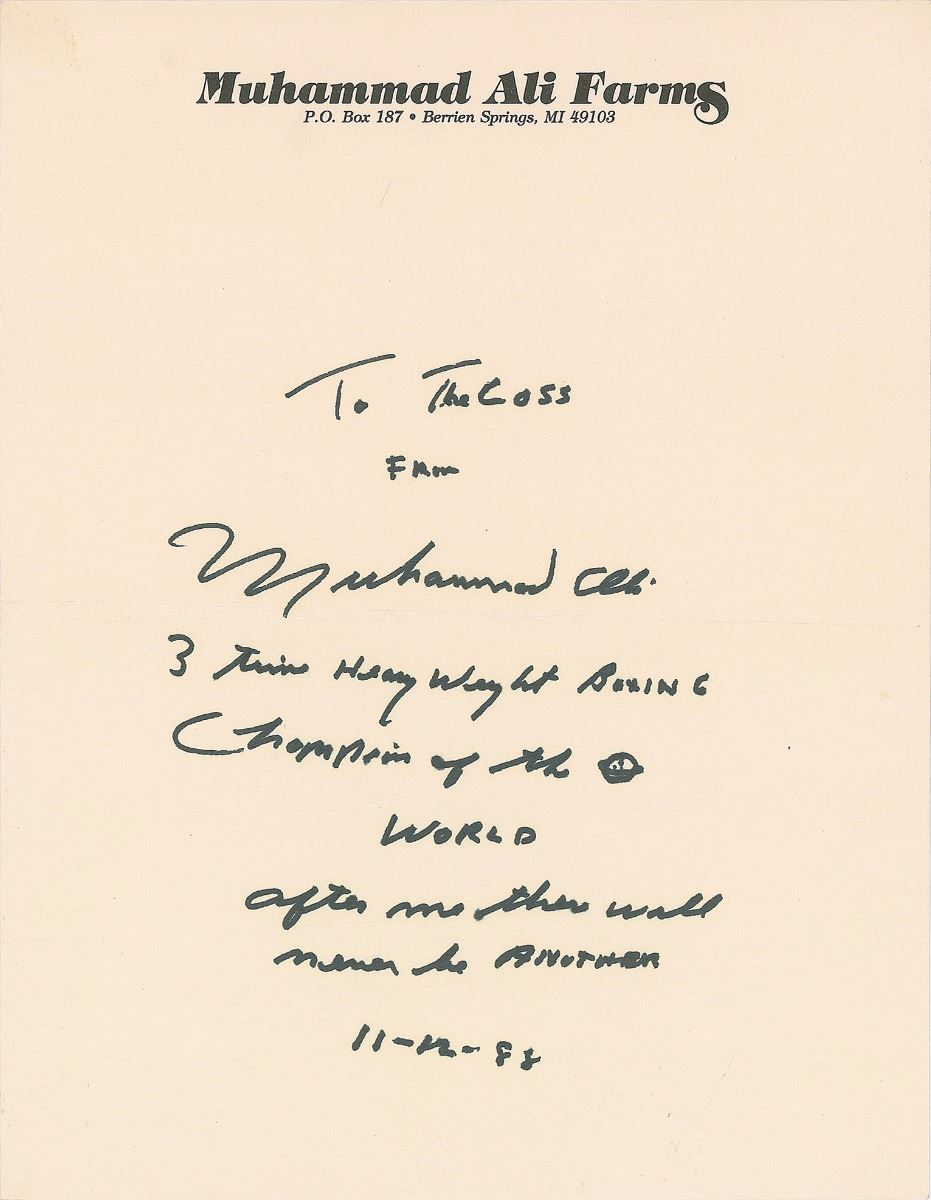 Muhammad Ali Farms
P.O. Box 187 • Berrien Springs, MI 49103
To The Coss
From
Muhammad Ali
3 Time Heavy Weight BOXING
Champion of the
WORLD
after me there will
never be ANOTHER
11-12-88